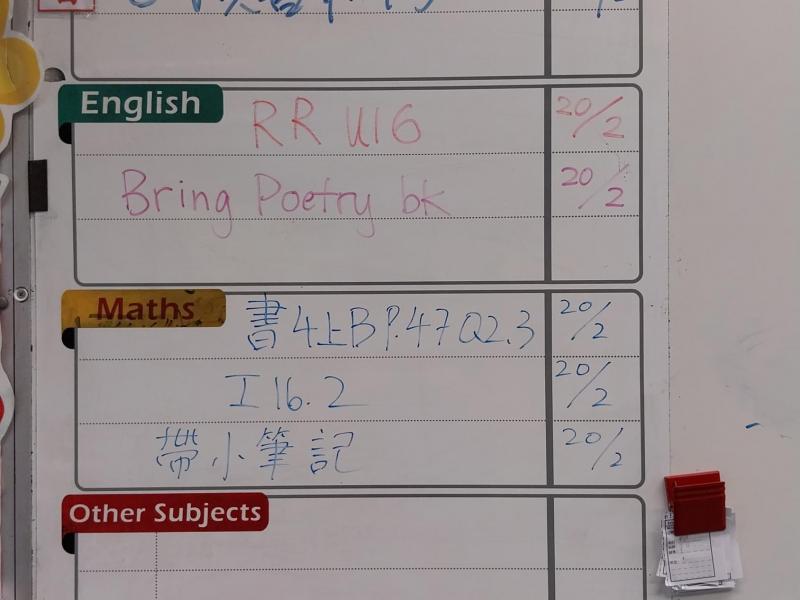 English
RR U16 20/2
Bring Poetry bk 20/2
Maths
書4上B P.47 Q2.3 20/2
工16.2 20/2
帶小筆記 20/2
Other Subjects